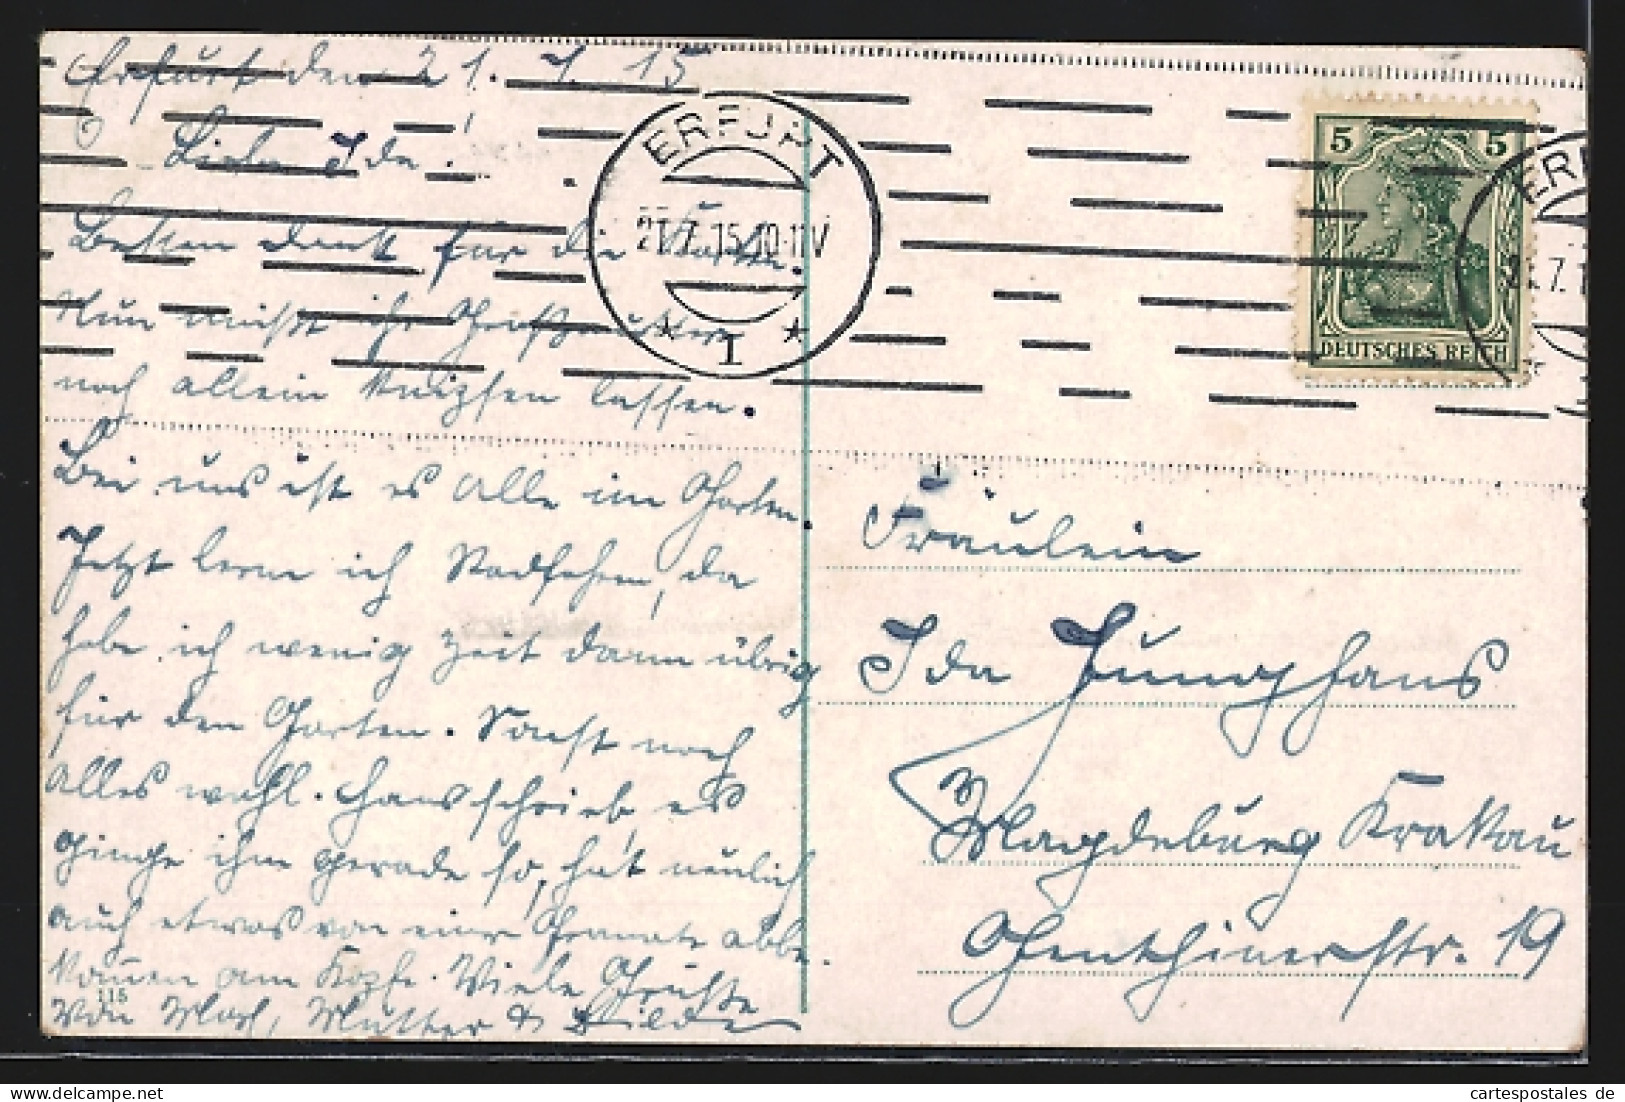 Erfurt den 21. 7. 15
Liebe Ida.
Besten Dank für die Karte.
Nun müßt ihr Großmutter
noch allein lassen.
Bei uns ist es alle im Garten.
Jetzt lerne ich Radfahren, da
habe ich wenig Zeit dann übrig
für den Garten. Sonst noch
alles wohl. Hans schrieb, es
ginge ihm gerade so, hat neulich
auch etwas von einer Granate abbe-
kommen am Kopf. Viele Grüsse
Von Mutter &
115
ERFURT
21.7.15.10-11V
* 1 *
5 5
DEUTSCHES REICH
ERF
21.7.1
Fräulein
Ida Junghans
Magdeburg Krakau
Genthinerstr. 19
cartespostales de